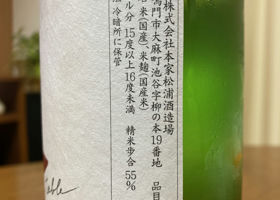 株式会社本家松浦酒造場
鳴門市大麻町池谷字柳の本19番地 品目
名 米(国産)、米麹(国産米)
ル分 15度以上16度未満 精米歩合 55%
法 冷暗所に保管
able